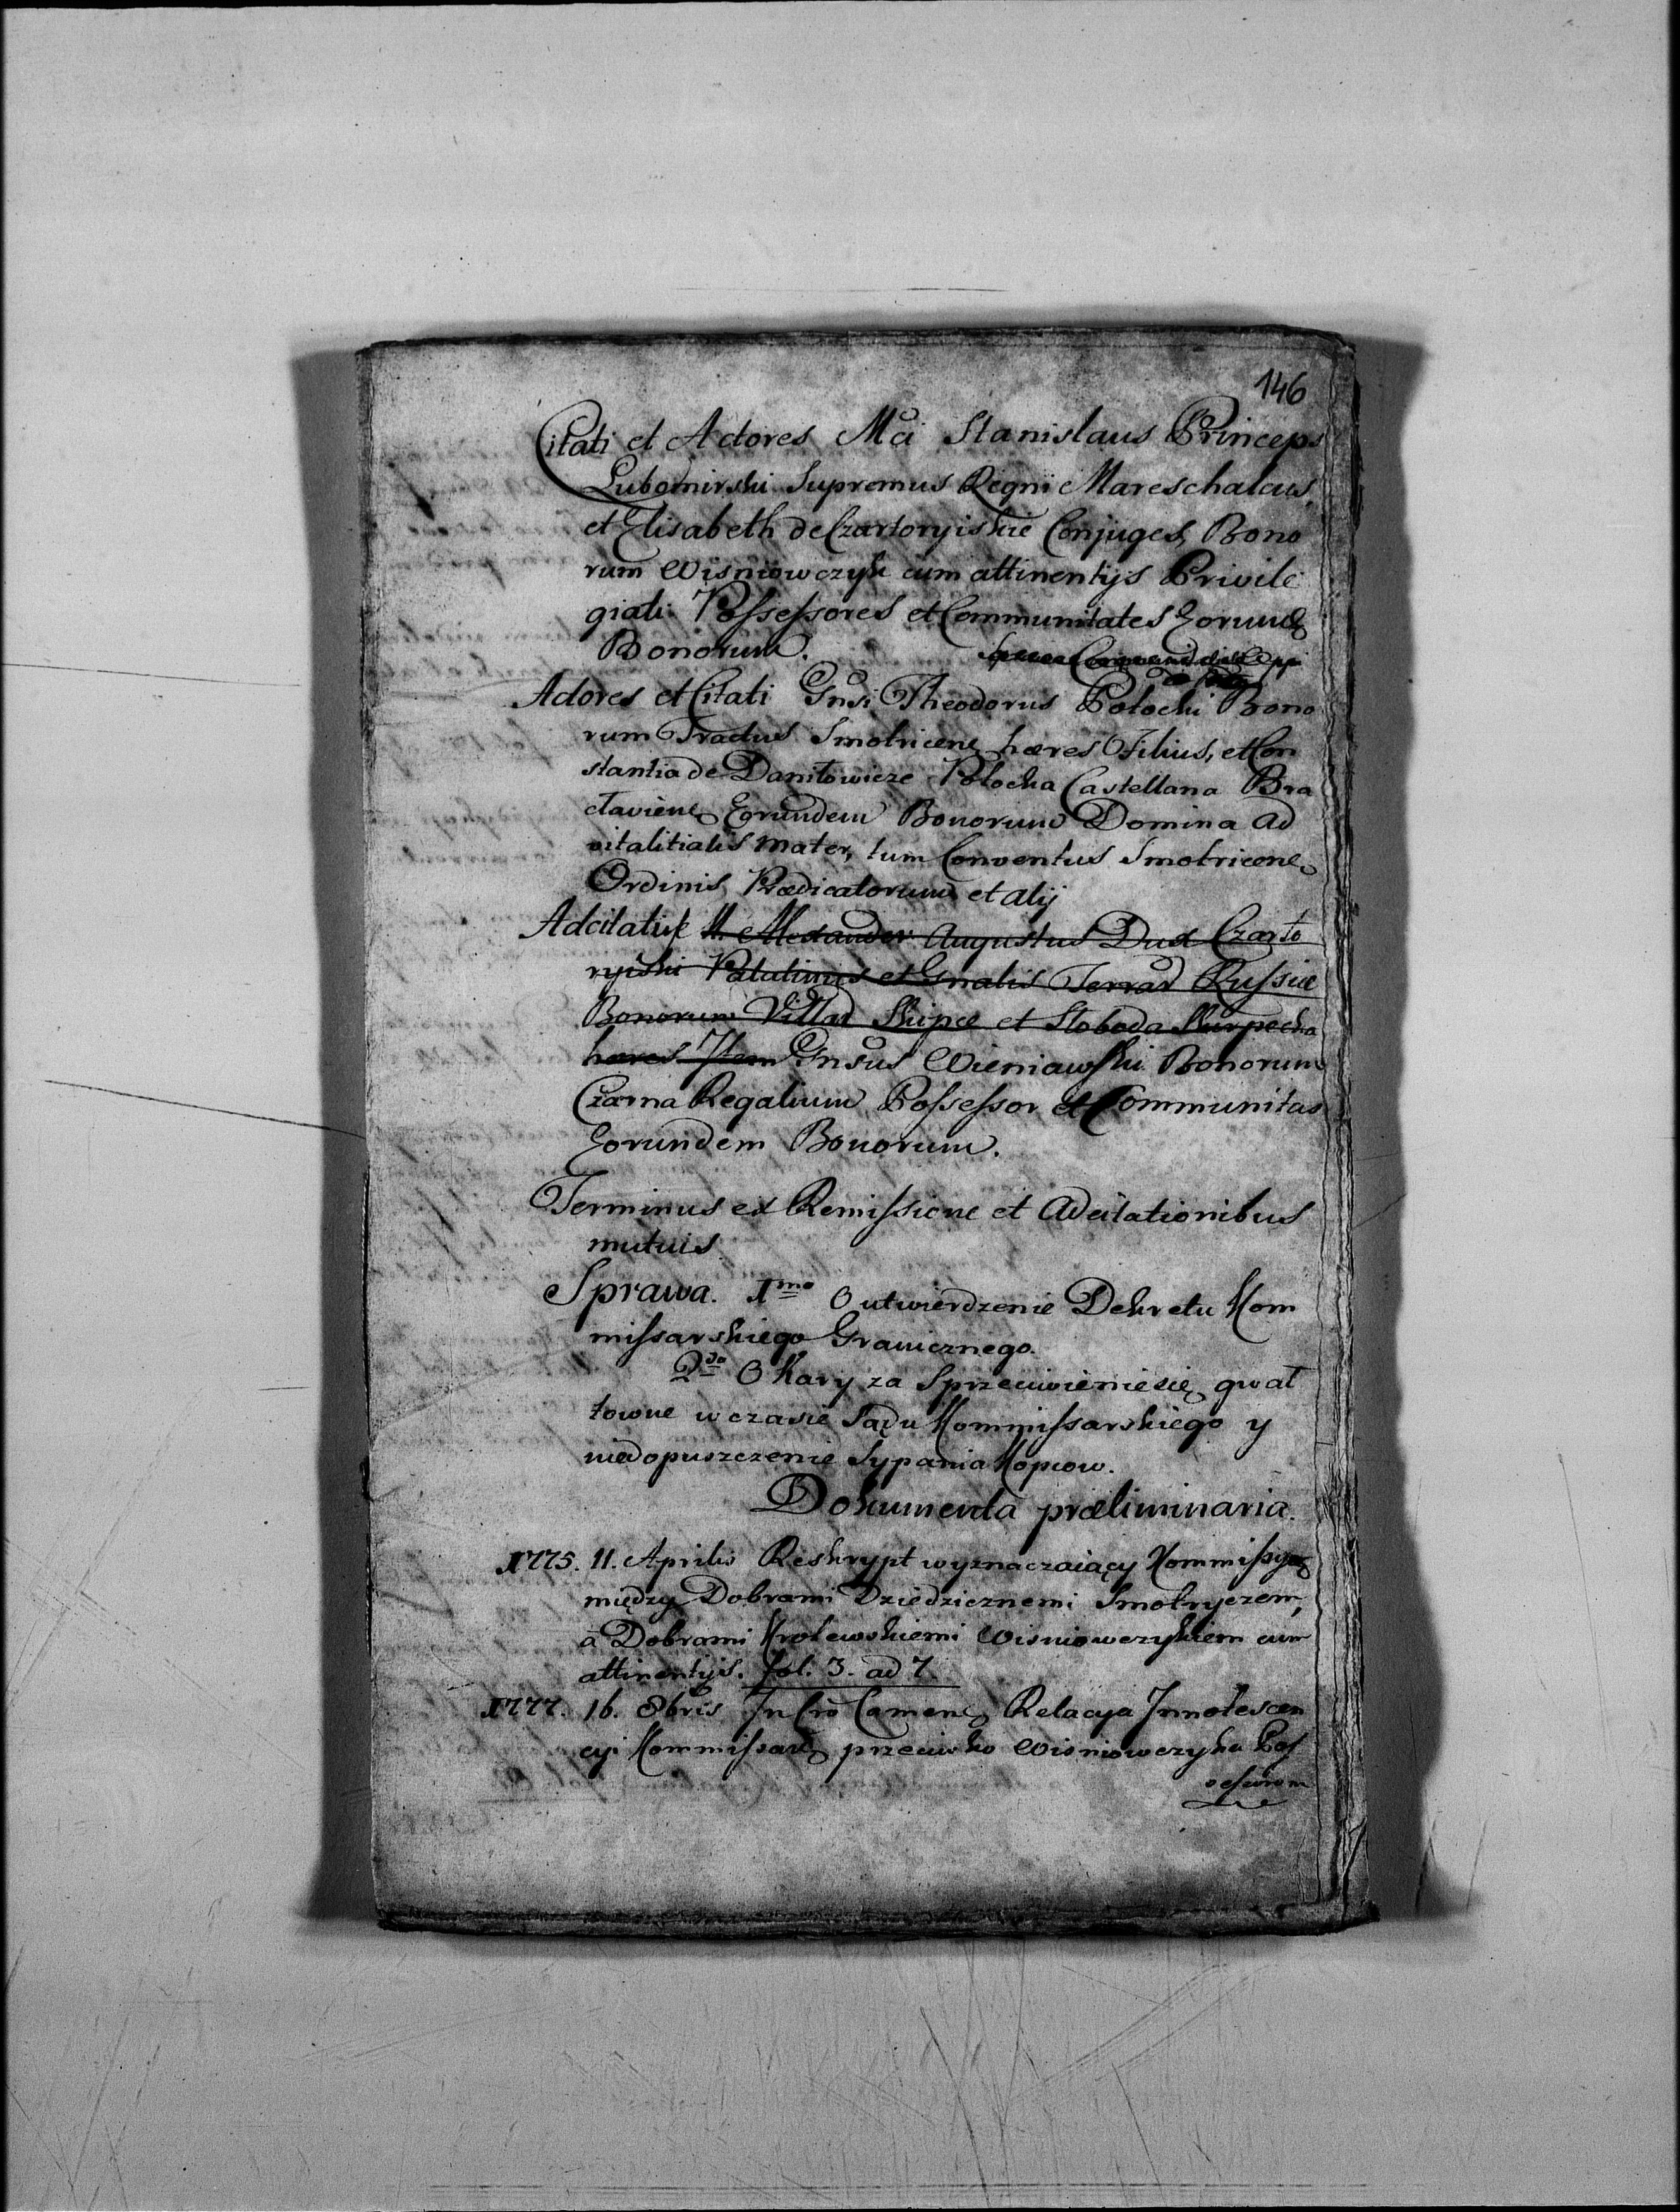 146
Citati et Actores Mci Stanislaus Princeps
Lubomirski Supremus Regni Mareschalcus,
et Elisabeth de Czartoryiskie Conjuges, Bono
rum Wisniowczyk cum attinentijs Privile
giati Possessores et Communitates Eorund
Bonorum.
Actores et Citati Gnsi Theodorus Potocki Bono
rum Tractus Smotricen hæres Filius, et Con
stantia de Daniłowicze Potocka Castellana Bra
claviens Eorundem Bonorum Domina ad
vitalitialis Mater, tum Conventus Smotricens
Ordinis Prædicatorum et alij
Adcitati Alexander Augustus Dux Czarto
ryiski Palatinus et Gnalis Terrar Russiæ
Bonorum Villar Skipce et Słoboda Skurpecka
hæres Item Gnsus Wieniawski Bonorum
Czarna Regalium Possessor et Communitas
Eorundem Bonorum.
Terminus ex Remissione et Adcitationibus
mutuis
Sprawa. 1mo O utwierdzenie Dekretu Kom
missarskiego Granicznego.
2do O Kary za Sprzeciwienie się gwał
towne w czasie Sądu Kommissarskiego y
niedopuszczenie Sypania Kopcow.
Dokumenta præliminaria.
1775. 11. Aprilis Reskrypt wyznaczaiący Kommissyą
między Dobrami Dziedzicznemi Smotryczem,
a Dobrami Krolewskiemi Wisniowczykiem cum
attinentijs. fol. 3. ad 7.
1777. 16. 8bris In Cro Camen Relacya Innotescen
cyi Kommissar przeciwko Wisniowczyka Pos
sessorom